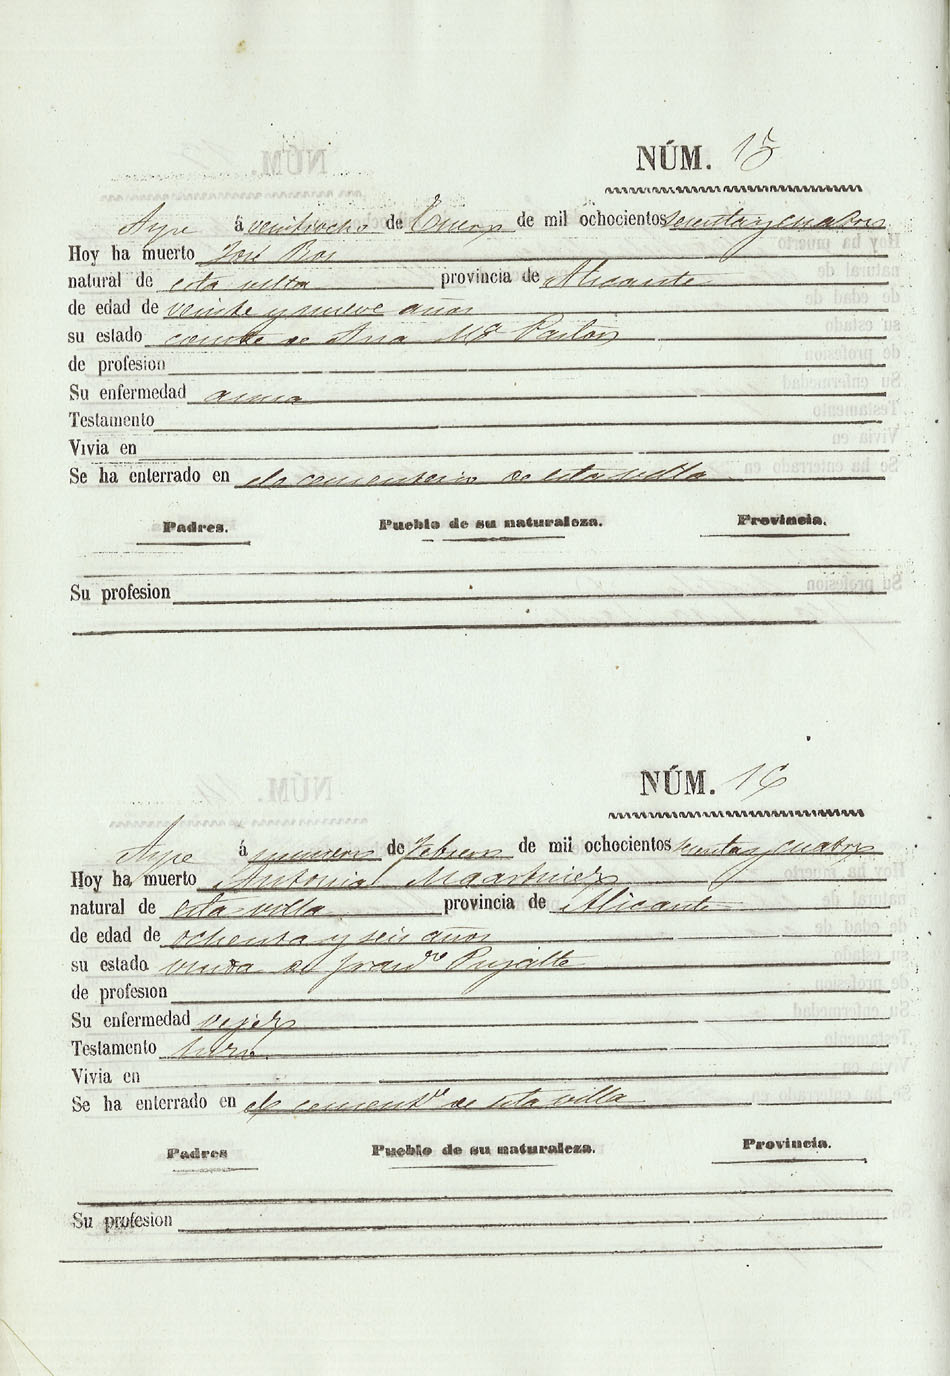 NÚM. 15
Aspe á veintiocho de Enero de mil ochocientos sesenta y cuatro
Hoy ha muerto José
natural de esta villa provincia de Alicante
de edad de veinte y nueve años
su estado de Ana Mª
de profesion
Su enfermedad
Testamento
Vivia en
Se ha enterrado en el cementerio de esta villa
Padres. Pueblo de su naturaleza. Provincia.
Su profesion
NÚM. 16
Aspe á primero de Febrero de mil ochocientos sesenta y cuatro
Hoy ha muerto Antonia Maartinez
natural de esta villa provincia de Alicante
de edad de ochenta y seis años
su estado viuda de Franco Pujalte
de profesion
Su enfermedad vejez
Testamento
Vivia en
Se ha enterrado en el cemento de esta villa
Padres Pueblo de su naturaleza. Provincia.
Su profesion